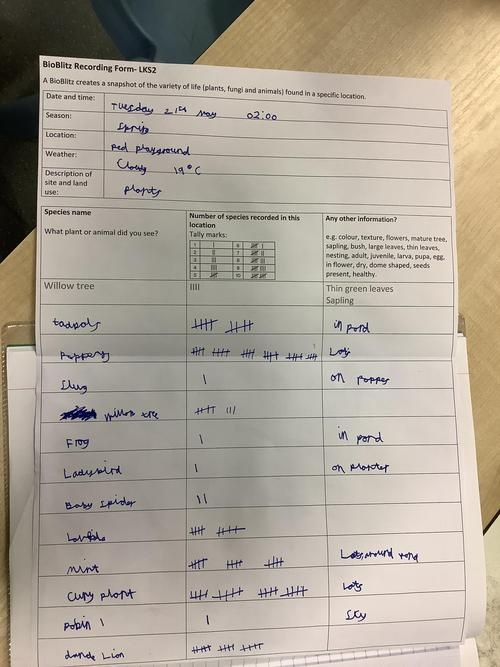 BioBlitz Recording Form- LKS2
A BioBlitz creates a snapshot of the variety of life (plants, fungi and animals) found in a specific location.
Date and time: Tuesday 21st May 02:00
Season: Spring
Location: red playground
Weather: Cloudy 19°C
Description of
site and land
use: plants
Species name
What plant or animal did you see?
Number of species recorded in this
location
Tally marks:
1 | 6 |
2 || 7 ||
3 ||| 8 |||
4 |||| 9 ||||
5 10
Any other information?
e.g. colour, texture, flowers, mature tree,
sapling, bush, large leaves, thin leaves,
nesting, adult, juvenile, larva, pupa, egg,
in flower, dry, dome shaped, seeds
present, healthy.
Willow tree |||| Thin green leaves
Sapling
tadpols in pond
Poppers Lots
Slug | on popper
willow tree
Frog | in pond
Ladybird | on
Baby Spider ||
mint Lots around
Curly plant Lots
robin 1 | Sky
dande Lion